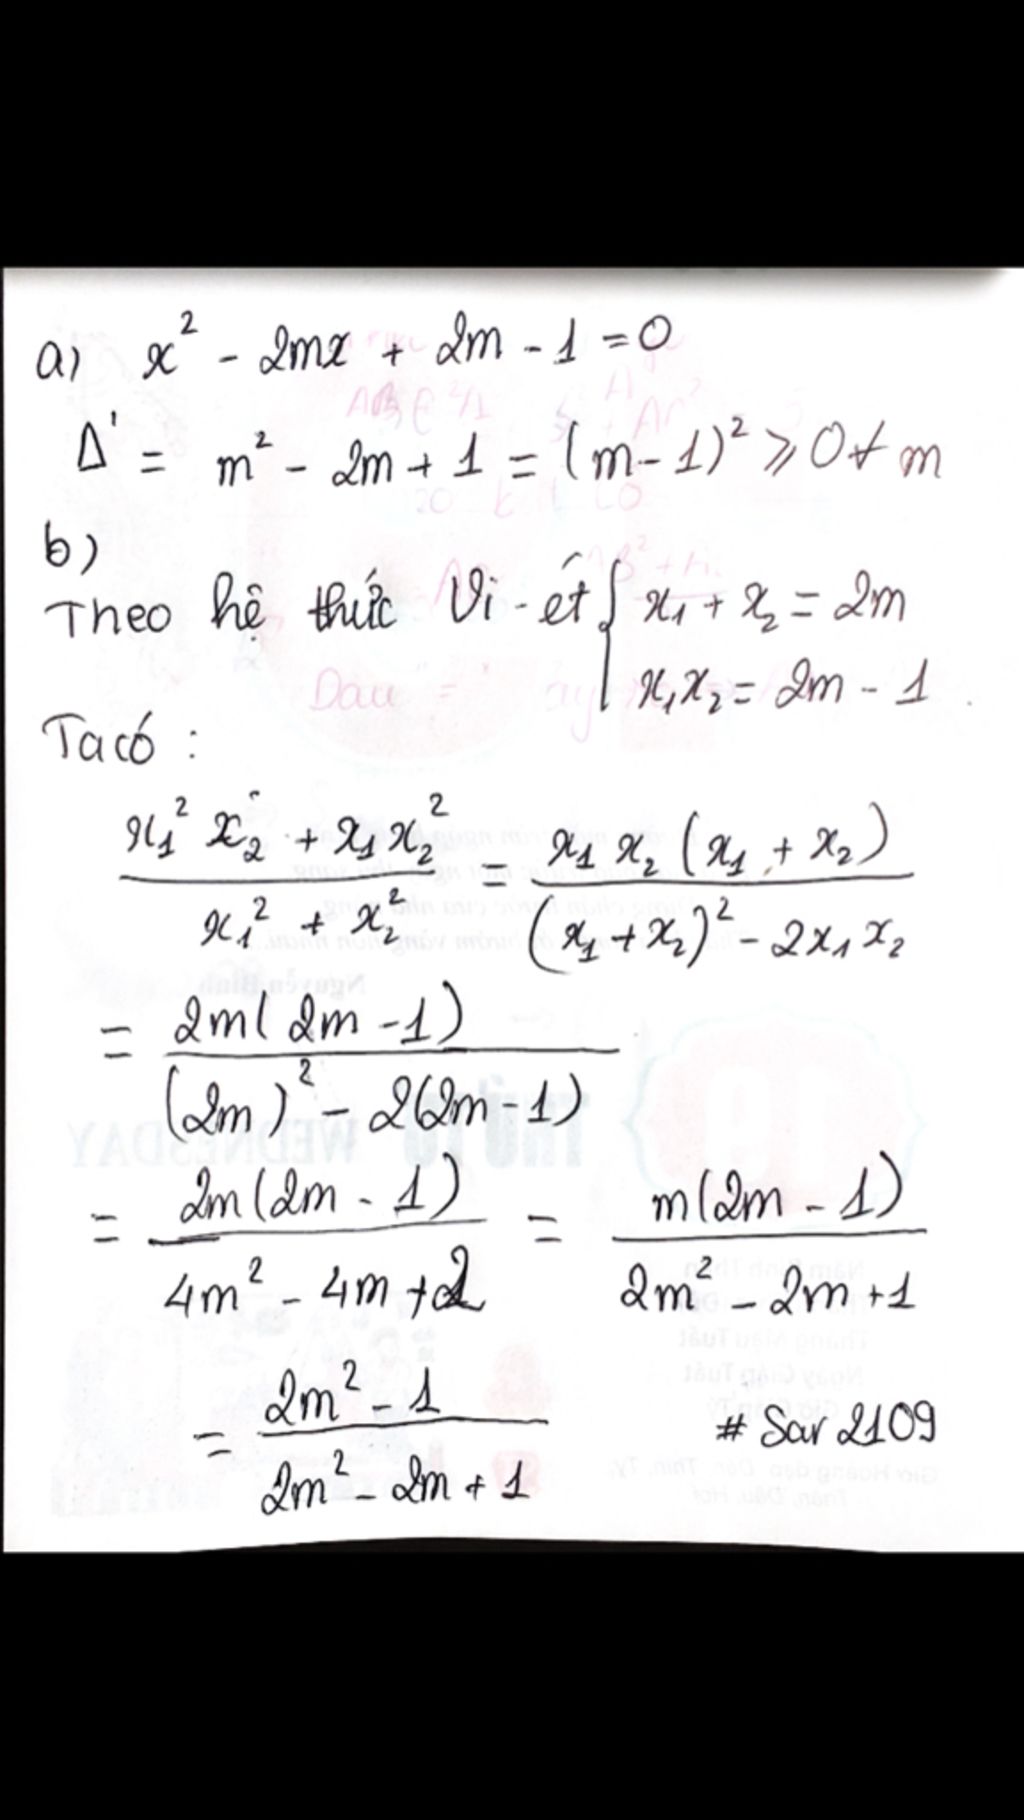 a) x² - 2mx + 2m - 1 = 0
Δ' = m² - 2m + 1 = (m - 1)² ⩾ 0 ∀ m
b)
Theo hệ thức Vi-ét { x₁ + x₂ = 2m
x₁x₂ = 2m - 1
Ta có :
(x₁² x₂ + x₁x₂²) / (x₁² + x₂²) = x₁ x₂ (x₁ + x₂) / ((x₁ + x₂)² - 2x₁x₂)
= 2m(2m - 1) / ((2m)² - 2(2m - 1))
= 2m(2m - 1) / (4m² - 4m + 2) = m(2m - 1) / (2m² - 2m + 1)
= (2m² - 1) / (2m² - 2m + 1)
# Sar 2109